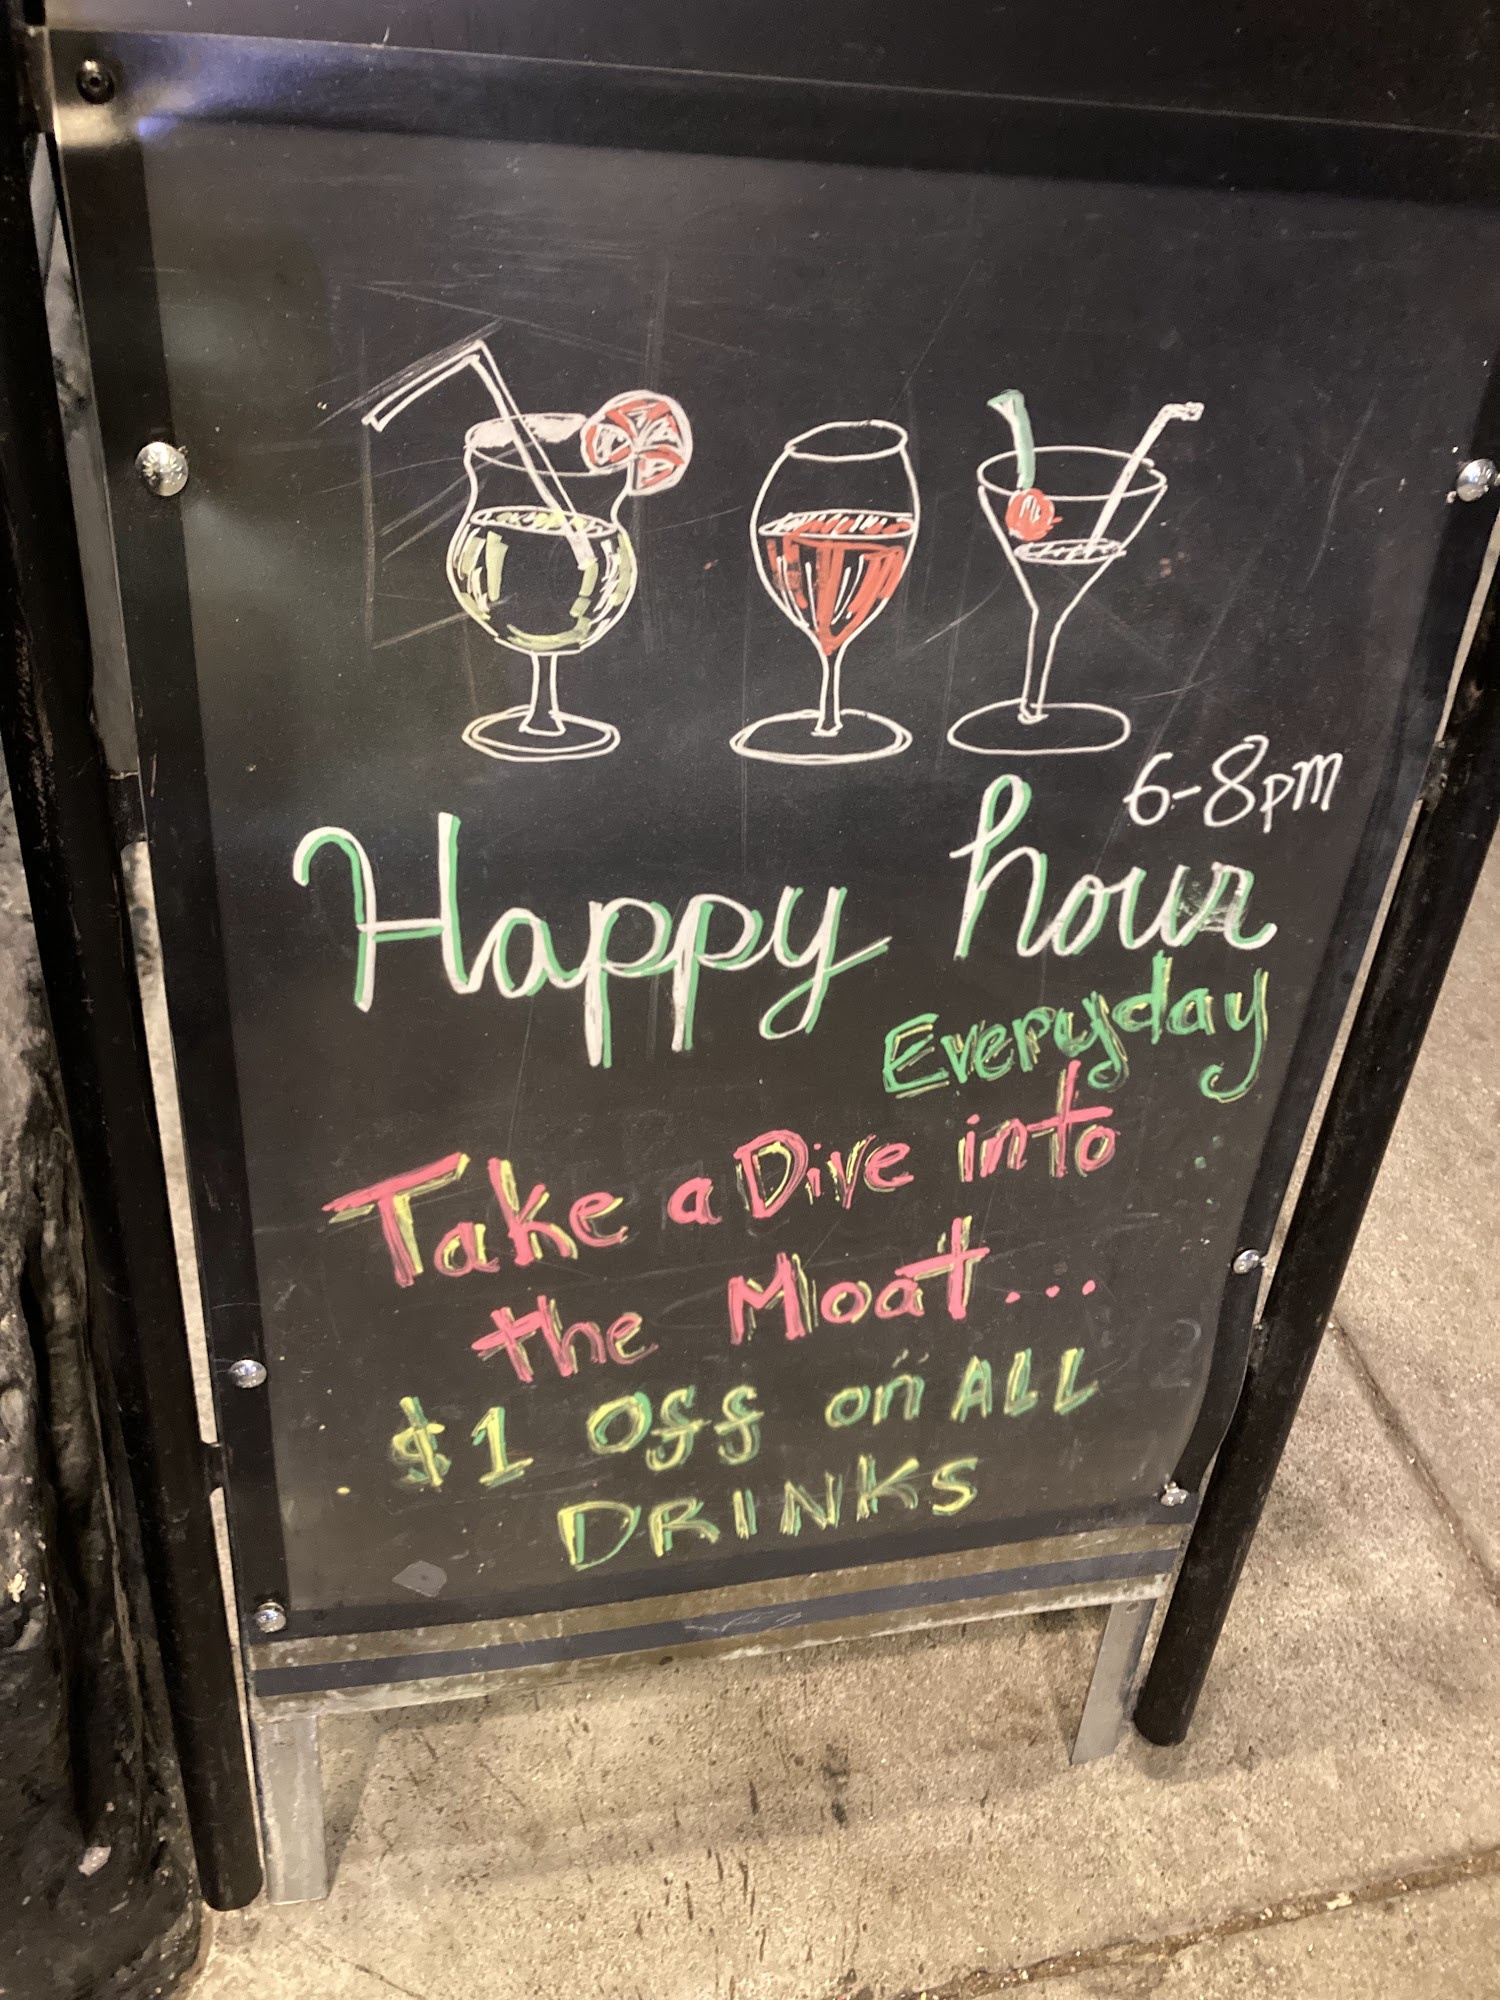 6-8pm
Happy hour
Everyday
Take a Dive into
the Moat...
$1 Off on ALL
DRINKS